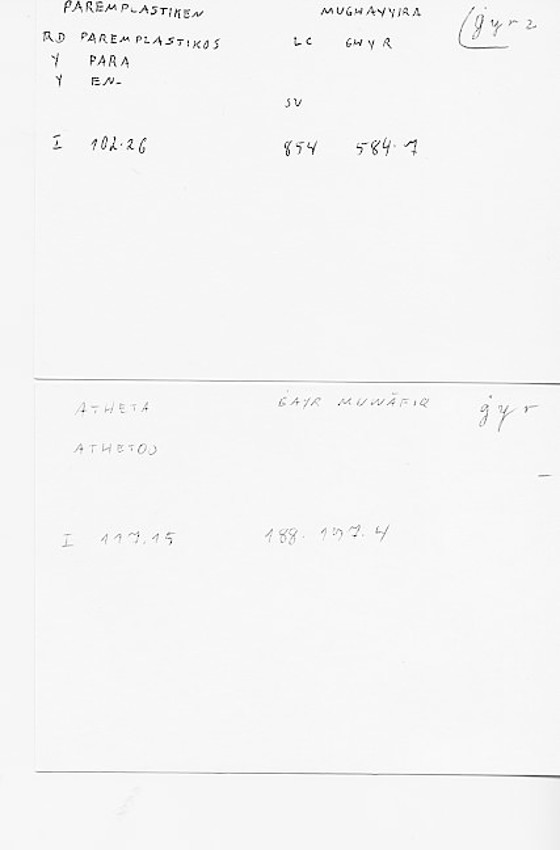 PAREMPLASTIKEN MUGHAYYIRA (ġyr 2
RD PAREMPLASTIKOS LC GWYR
Y PARA
Y EN-
SU
I 102.26 854 584.7
ATHETA ĠAYR MUWĀFIQ ġyr
ATHETOS
-
I 117.15 188. 197.4